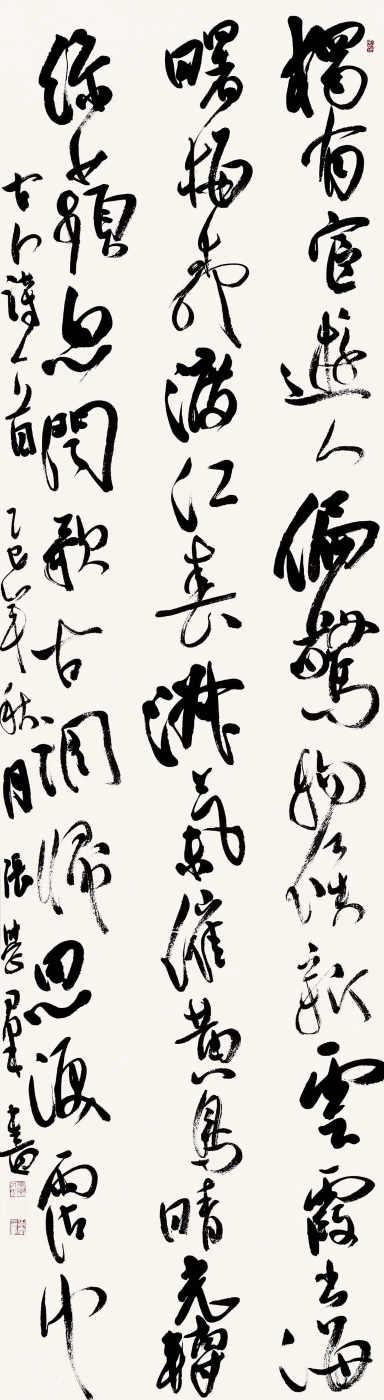 獨有宦遊人偏驚物候新雲霞出海
曙梅柳渡江春淑氣催黃鳥晴光轉
綠蘋忽聞歌古調歸思欲霑巾
古人詩一首 乙巳年秋月 張書